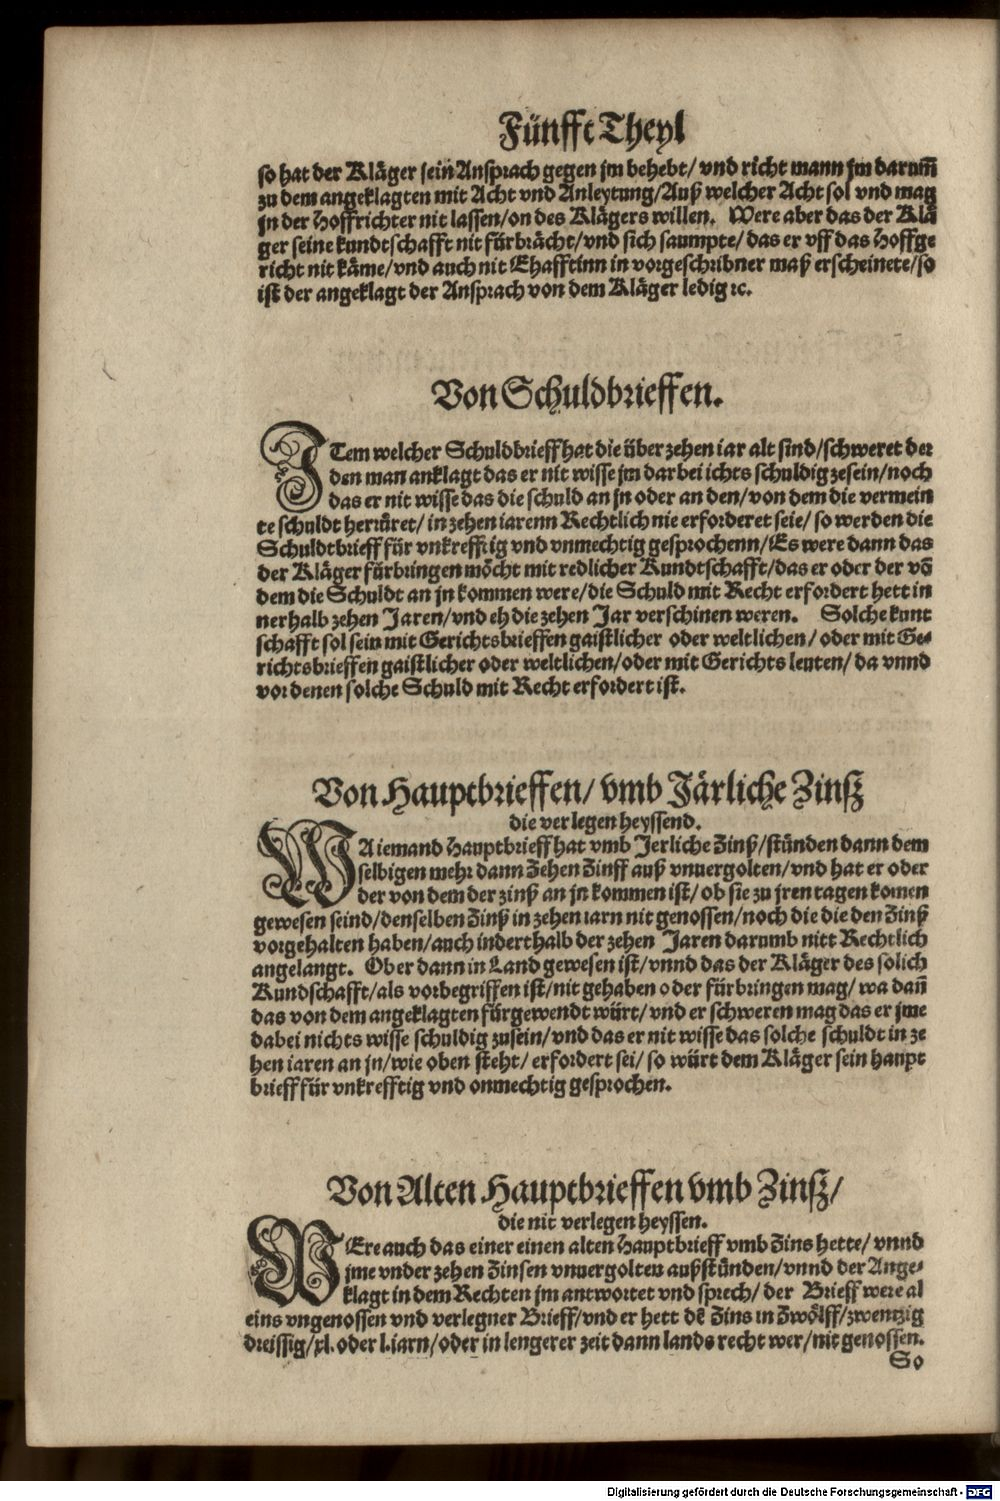 Fünfft Theyl
so hat der Kläger sein Ansprach gegen jm behebt/ vnd richt mann jm darum̃
zu dem angeklagten mit Acht vnd Anleytung/Auß welcher Acht sol vnd mag
jn der Hoffrichter nit lassen/on des Klägers willen. Were aber das der Klä
ger seine kundtschafft nit fürbrächt/vnd sich saumpte/ das er vff das Hoffge
richt nit käme/vnd auch nit Ehafftinn in vorgeschribner maß erscheinete/so
ist der angeklagt der Ansprach von dem Kläger ledig ꝛc.
Von Schuldbrieffen.
ITem welcher Schuldbrieff hat die über zehen iar alt sind/schweret der
den man anklagt das er nit wisse jm darbei ichts schuldig zesein/noch
das er nit wisse das die schuld an jn oder an den/von dem die vermein
te schuldt herrüret/ in zehen iarenn Rechtlich nie erforderet seie/ so werden die
Schuldtbrieff für vnkrefftig vnd vnmechtig gesprochenn/Es were dann das
der Kläger fürbringen möcht mit redlicher Kundtschafft/das er oder der võ
dem die Schuldt an jn kommen were/die Schuld mit Recht erfordert hett in
nerhalb zehen Jaren/vnd eh die zehen Jar verschinen weren. Solche kunt
schafft sol sein mit Gerichtsbrieffen gaistlicher oder weltlichen/ oder mit Ge⸗
richtsbrieffen gaistlicher oder weltlichen/oder mit Gerichts leuten/ da vnnd
vor denen solche Schuld mit Recht erfordert ist.
Von Hauptbrieffen/ vmb Järliche Zinsz
die verlegen heyssend.
WA iemand Hauptbrieff hat vmb Jerliche Zinß/stünden dann dem
selbigen mehr dann Zehen Zinff auß vnuergolten/vnd hat er oder
der von dem der zinß an jn kommen ist/ ob sie zu jren tagen komen
gewesen seind/denselben Zinß in zehen iarn nit genossen/noch die die den Zinß
vorgehalten haben/auch inderthalb der zehen Jaren darumb nitt Rechtlich
angelangt. Ob er dann in Land gewesen ist/vnnd das der Kläger des solich
Kundschafft/als vorbegriffen ist/nit gehaben oder fürbringen mag/ wa dañ
das von dem angeklagten fürgewendt würt/ vnd er schweren mag das er jme
dabei nichts wisse schuldig zusein/vnd das er nit wisse das solche schuldt in ze
hen iaren an jn/wie oben steht/ erfordert sei/ so würt dem Kläger sein haupt
brieff für vnkrefftig vnd onmechtig gesprochen.
Von Alten Hauptbrieffen vmb Zinsz/
die nit verlegen heyssen.
WEre auch das einer einen alten Hauptbrieff vmb Zins hette/ vnnd
jme vnder zehen Zinsen vnuergolten außstünden/vnnd der Ange⸗
klagt in dem Rechten jm antwortet vnd sprech/ der Brieff were al
eins vngenossen vnd verlegner Brieff/vnd er hett dē Zins in Zwölff/zwentzig
dreissig/xl. oder l. iarn/oder in lengerer zeit dann lands recht wer/nit genossen.
So
Digitalisierung gefördert durch die Deutsche Forschungsgemeinschaft - DFG